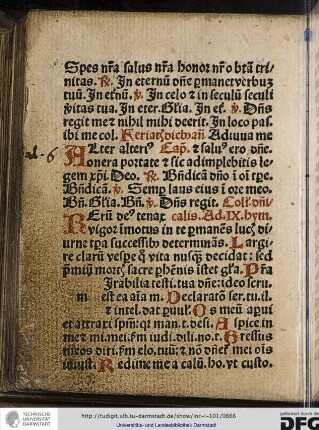 Spes nr̄a salus nr̄a honor nr̄ o btā tri/
nitas. R. In eternū dn̄e ꝑmanet verbuꝫ
tuū. In et̄nū. v. In celo ⁊ in seculū seculi
v̄itas tua. In eter. Gl̄ia. In et̄. v. Dn̄s
regit me ⁊ nihil mihi deerit. In loco pas.
ibi me col. Adiuua me
Alter alteri⁹ Cap̄. ⁊ saluꝰ ero dn̄e.
onera portate ⁊ sic adimplebitis le/
gem xp̄i. Deo. R. Bn̄dicā dn̄o ī oī tꝑe.
Bn̄dicā. v. Semꝑ laus eius ī ore meo.
Bn̄. Gl̄ia. Bn̄. v. Dn̄s regit. Coll. dn̄i/
Rerū de⁹ tenax calis. Ad. IX. hym.
vigor īmotus in te ꝑmanēs lucꝭ di/
urne tꝑa successibꝰ determināns. Largi/
re clarū vespe q̄ vita nusq̄ȝ decidat: sed
p̄miū mortꝭ sacre ꝑhēnis īstet gl̄a. P̄fa
Irabilia testi. tua dn̄e: ideo scru.
m est ea aīa m. Declaratō ser. tu. il.
⁊ intel. dat ꝑuul. Os meū aꝑui
et attraxi sp̄m: qꝛ man. t. desi. Aspice in
me ⁊ mi. mei: ẜm iudi. dili. no. t. Gressus
meos diri. ẜm elo. tuū: ⁊ nō dn̄eꝉ mei oīs
iniust. Redime me a calū. ho. vt custo.
TECHNISCHE
UNIVERSITÄT
DARMSTADT
http://tudigit.ulb.tu-darmstadt.de/show/inc-i-101/0666
Universitäts- und Landesbibliothek Darmstadt
gefördert durch die
DFG